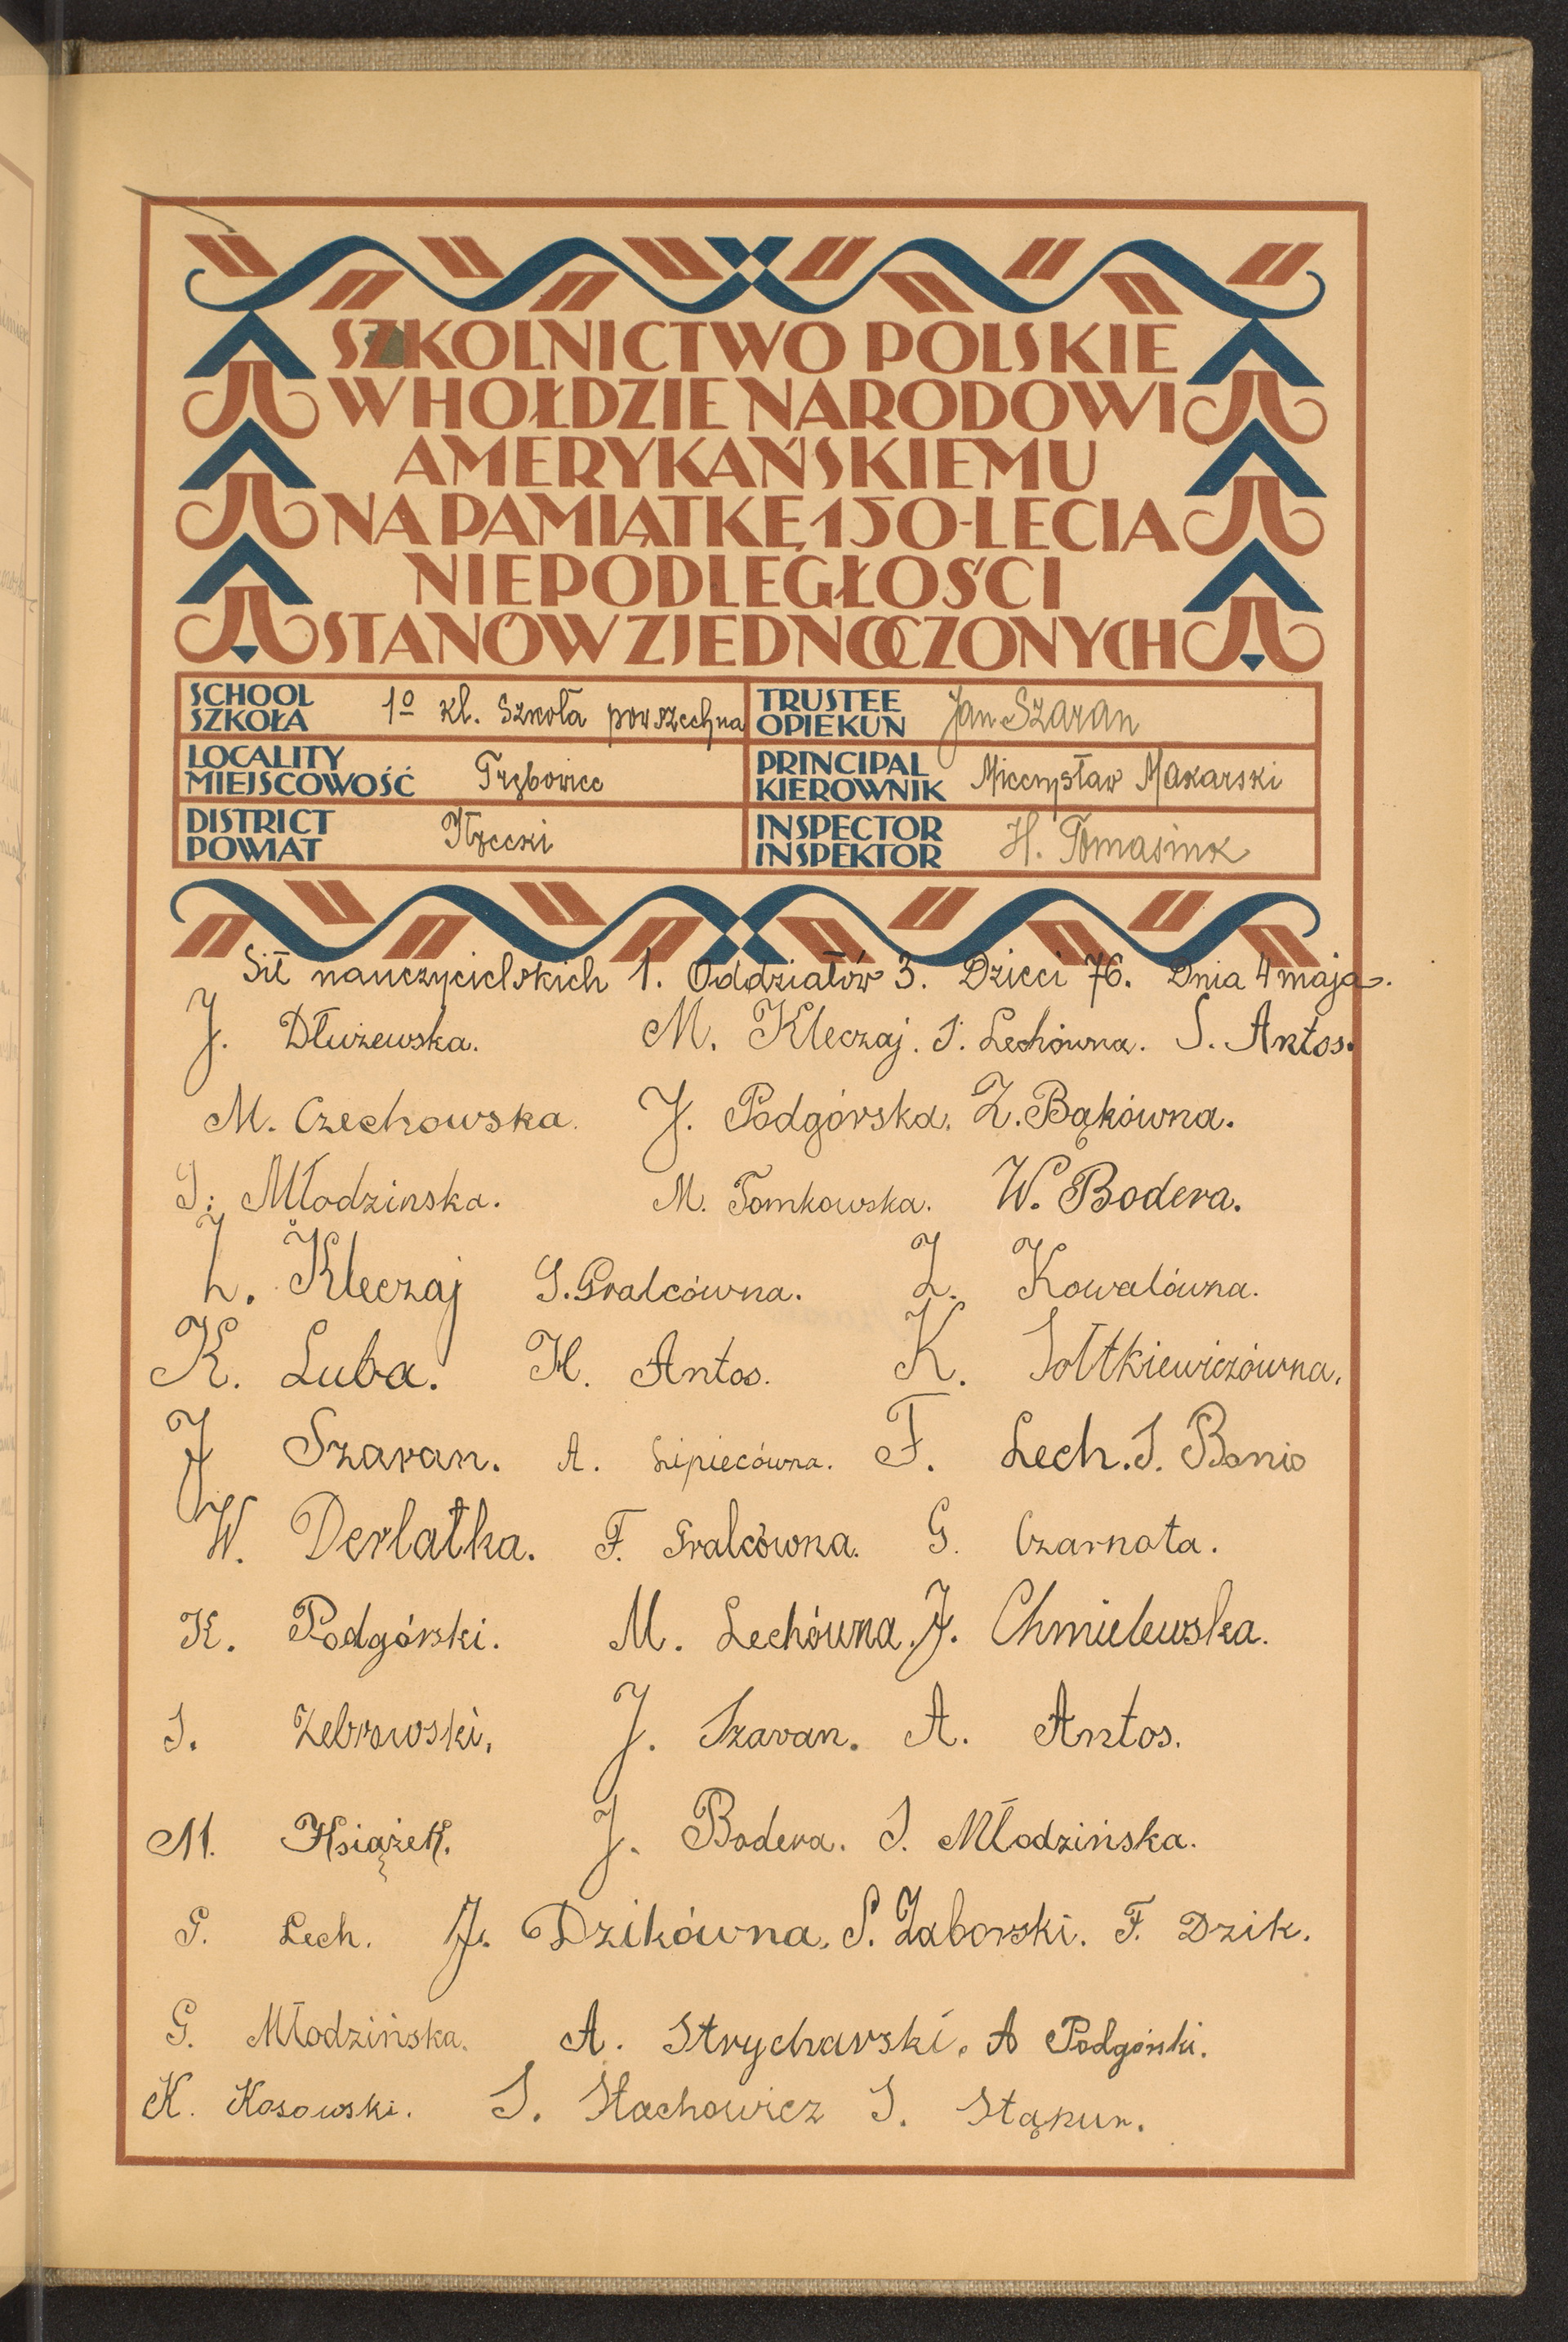 SZKOLNICTWO POLSKIE
W HOŁDZIE NARODOWI
AMERYKAŃSKIEMU
NA PAMIĄTKĘ 150-LECIA
NIEPODLEGŁOŚCI
STANÓW ZJEDNOCZONYCH
SCHOOL
SZKOŁA
1º kl. Szkoła powszechna
TRUSTEE
OPIEKUN
Jan Szaran
LOCALITY
MIEJSCOWOŚĆ
Trębowiec
PRINCIPAL
KIEROWNIK
Mieczysław Makarski
DISTRICT
POWIAT
Iłżecki
INSPECTOR
INSPEKTOR
H. Tomasink
Sił nauczycielskich 1. Oddziałów 3. Dzieci 76. Dnia 4 maja.
J. Dłużewska. M. Kleczaj. S. Lechówna. S. Antos.
M. Czechowska. J. Podgórska. Z. Bąkówna.
S. Młodzinska. M. Tomkowska. W. Bodera.
L. Kleczaj S. Gralcówna. Z. Kowalówna.
K. Luba. H. Antos. K. Sołtkiewiczówna.
J Szaran. A. Lipiecówna. F. Lech. S. Bonio
W. Derlatka. F. Gralcówna. G. Czarnota.
K. Podgórski. M. Lechówna. J. Chmielewska.
S. Zebrowski. J. Szaran. A. Antos.
M. Książek. J. Bodera. S. Młodzińska.
S. Lech. J. Dzikówna. S. Zaborski. F. Dzik.
G. Młodzińska. A. Strycharski. A Podgórski.
K. Kosowski. S. Stachowicz S. Stąpur.